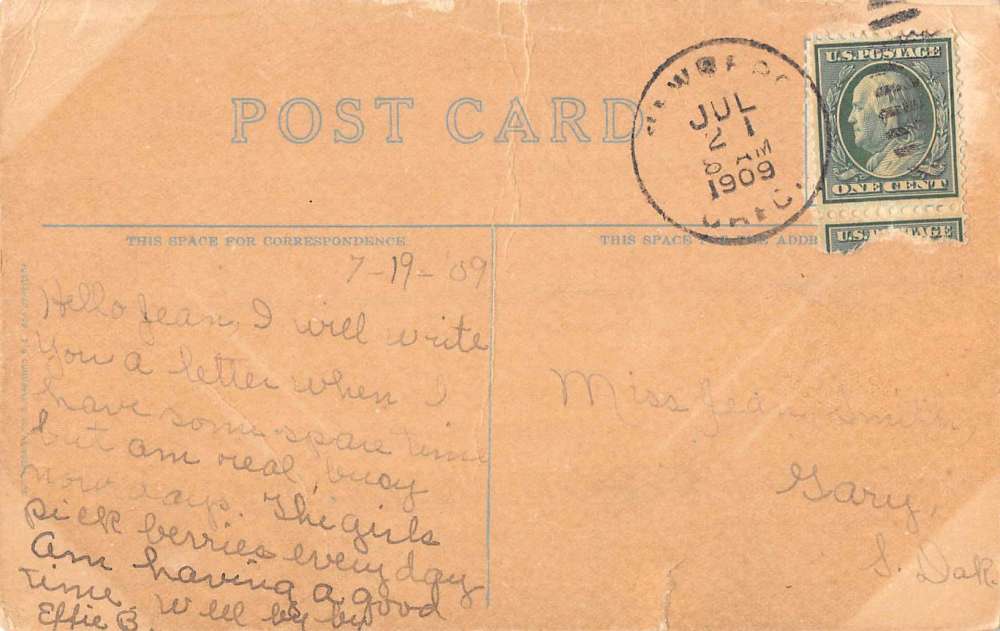 POST CARD
JUL
21
8 AM
1909
U.S. POSTAGE
ONE CENT
U.S. POSTAGE
THIS SPACE FOR CORRESPONDENCE
THIS SPACE FOR THE ADDR
7-19-'09
Hello Jean, I will write
you a letter when I
have some spare time
but am real busy
now days. The girls
pick berries every day
Am having a good
time. Well by by
Effie B.
Miss Jean Smith,
Gary,
S. Dak.